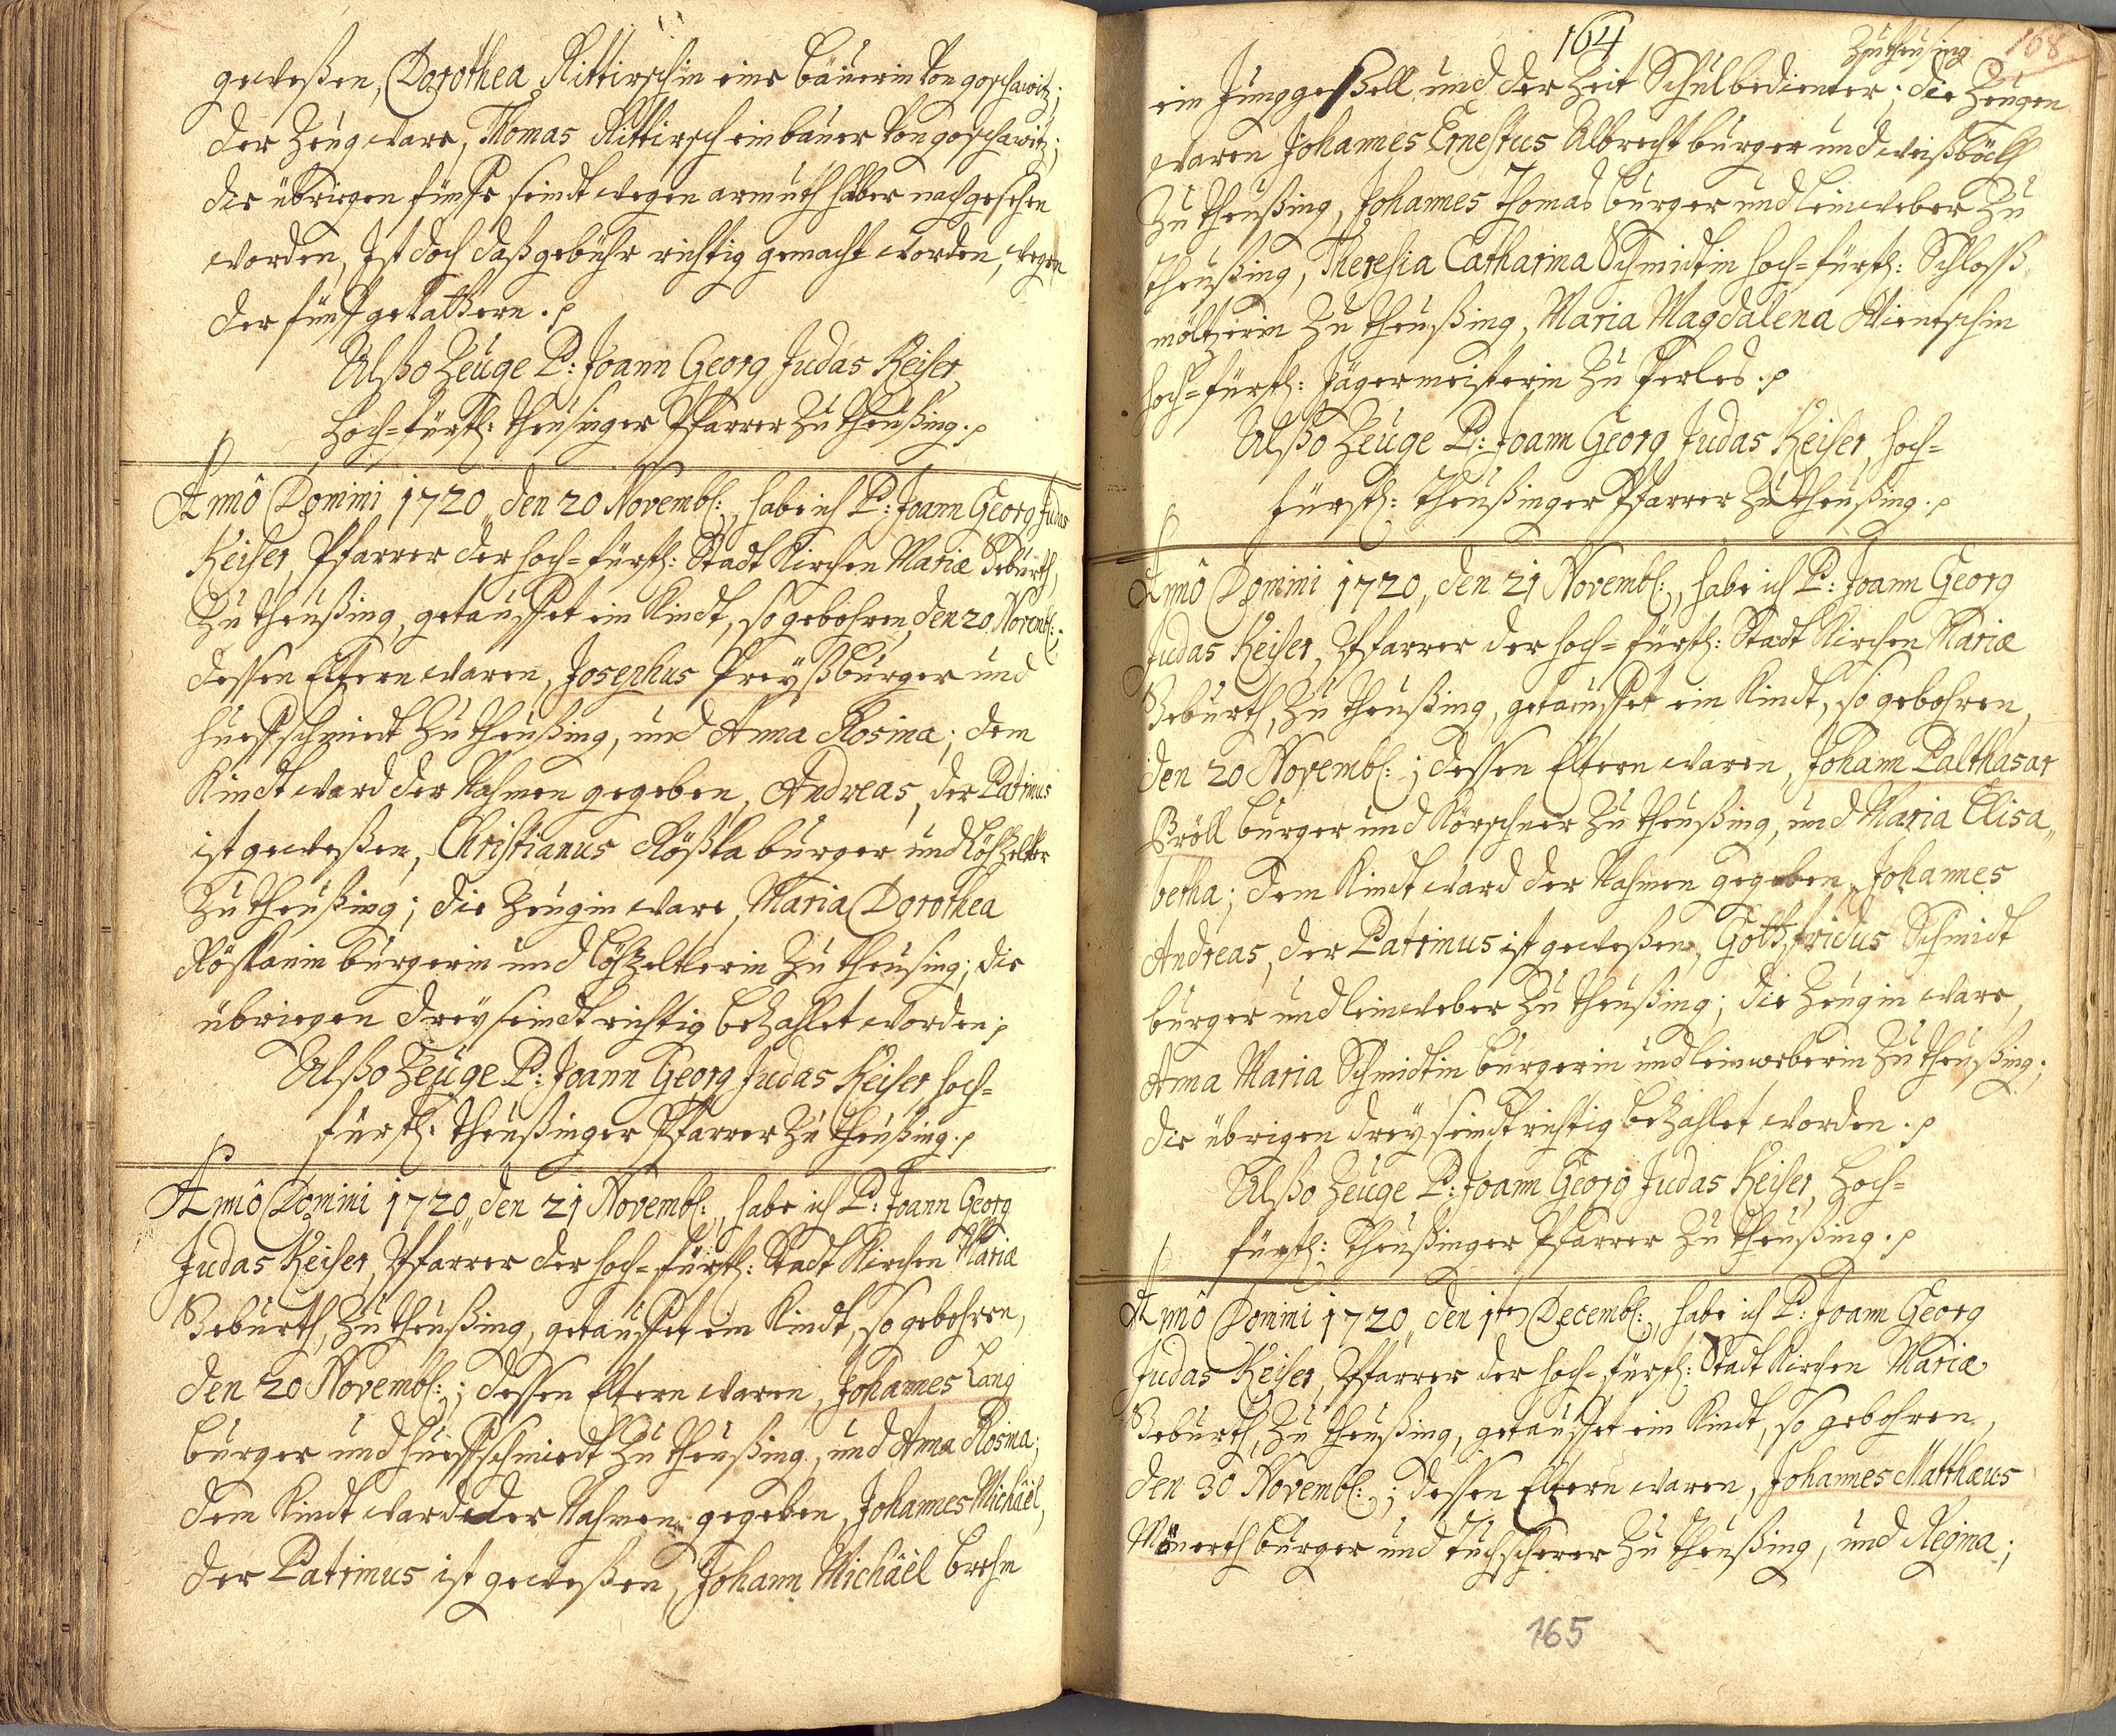 geweßen, Dorothea Rittirschin eine bäuerin von goschawitz;
der Zeug ware, Thomas Rittirsch ein bauer von goschawitz;
die übriegen fünfe seindt wegen armuth halber nachgesehen
worden, Ist doch daß gebühr richtig gemacht worden, wegen
der fünf gevattern.
Alßo Zeuge P: Joann Georg Judas Keiser,
Hoch=fürstl: theusinger Pfarrer Zu theußing.
Annô Domini 1720, den 20 Novembr:, habe ich P: Joann Georg Judas
Keiser, Pfarrer der hoch=fürstl: Stadt Kirchen Mariæ Geburth,
Zu theußing, getauffet ein Kindt, so gebohren, den 20 Novembr:;
dessen Eltern waren, Josephus Preyß burger und
hueffschmiedt Zu theußing, und Anna Rosina; dem
Kindt ward der Nahmen gegeben, Andreas, der Patrinus
ist geweßen, Christianus Rößka burger und Löhzelter
Zu theußing; die Zeugin ware, Maria Dorothea
Röskanin burgerin und Löhzelterin Zu theusing; die
übriegen drey seindt richtig beZahlet worden.
Alßo Zeuge P: Joann Georg Judas Keiser hoch=
fürstl: theußinger Pfarrer Zu theußing.
Annô Domini 1720, den 21 Novembr:, habe ich P: Joann Georg
Judas Keiser, Pfarrer der hoch=fürstl: Stadt Kirchen Mariæ
Geburth, Zu theußing, getauffet ein Kindt, so gebohren,
den 20 Novembr:; dessen Eltern waren, Johannes Lang
burger und hueffschmiedt Zu theußing, und Anna Rosina;
dem Kindt ward der Nahmen gegeben, Johannes Michäel,
der Patrinus ist geweßen, Johann Michäel brehm
164
Zutheusing 168
ein Junggeßell und der Zeit Schulbedienter; die Zeugen
waren Johannes Ernestus Albrecht burger und weißböckh
Zu theußing, Johannes Thomas burger und leinweber Zu
theußing, Theresia Catharina Schmidtin hoch=fürstl: Schloß
möltzerin Zu theußing, Maria Magdalena Wientschin
hoch=fürstl: Jägermeisterin Zu Perles.
Alßo Zeuge P: Joann Georg Judas Keiser, hoch=
fürstl: theußinger Pfarrer Zu theußing.
Annô Domini 1720, den 21 Novembr:, habe ich P: Joann Georg
Judas Keiser, Pfarrer der hoch=fürstl: Stadt Kirchen Mariæ
Geburth, Zu theußing, getauffet ein Kindt, so gebohren,
den 20 Novembr:; dessen Eltern waren, Johann Palthasar
Bröll burger und Körschner Zu theußing, und Maria Elisa„
betha; dem Kindt ward der Nahmen gegeben, Johannes
Andreas, der Patrinus ist geweßen, Gottfridus Schmidt
burger und leinweber Zu theußing; die Zeugin ware,
Anna Maria Schmidtin burgerin und leinweberin Zu theußing;
die übrigen drey seindt richtig beZahlet worden.
Alßo Zeuge P: Joann Georg Judas Keiser, Hoch=
fürstl: theußinger Pfarrer Zu theußing.
Annô Domini 1720, den 1ten Decembr:, habe ich P: Joann Georg
Judas Keiser, Pfarrer der hoch=fürstl: Stadt Kirchen Mariæ
Geburth, Zu theußing, getauffet ein Kindt, so gebohren,
den 30 Novembr:; dessen Eltern waren, Johannes Matthæus
Mönerth burger und tuchscherer Zu theußing, und Regina;
165